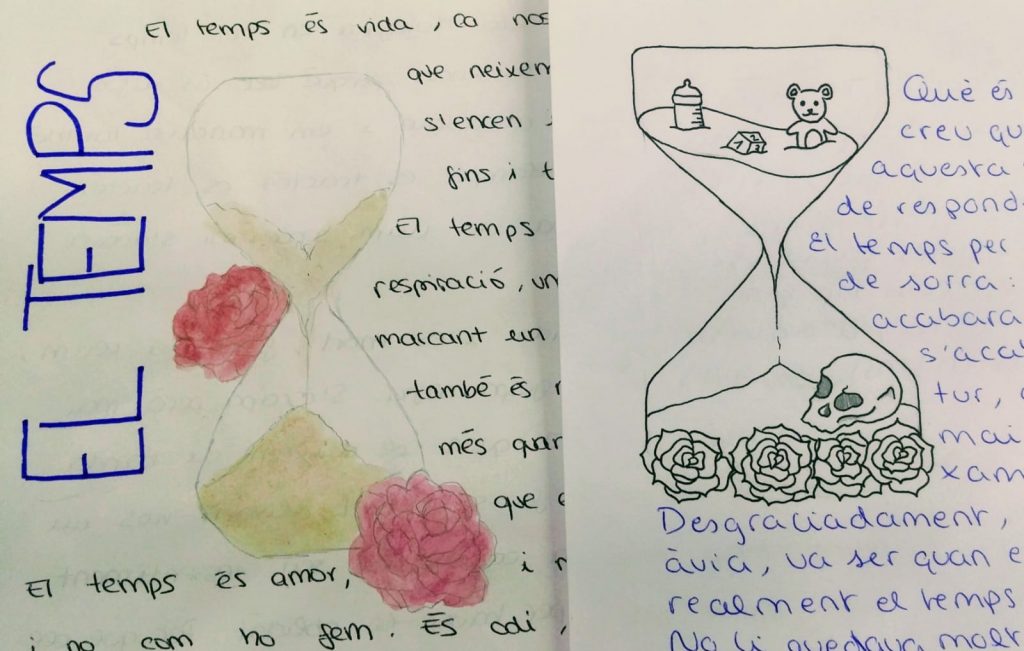 EL TEMPS
El temps és vida, ca nos
que neixem
s'encen
fins i t
El temps
respiració, un
marcant un
també és
més quan
que e
El temps és amor, i
i no com ho fem. És odi,
Què és
creu qu
aquesta
de respond
El temps per
de sorra:
acabara
s'acab
tur,
mai
xam
Desgraciadament,
àvia, va ser quan e
realment el temps
No li quedava